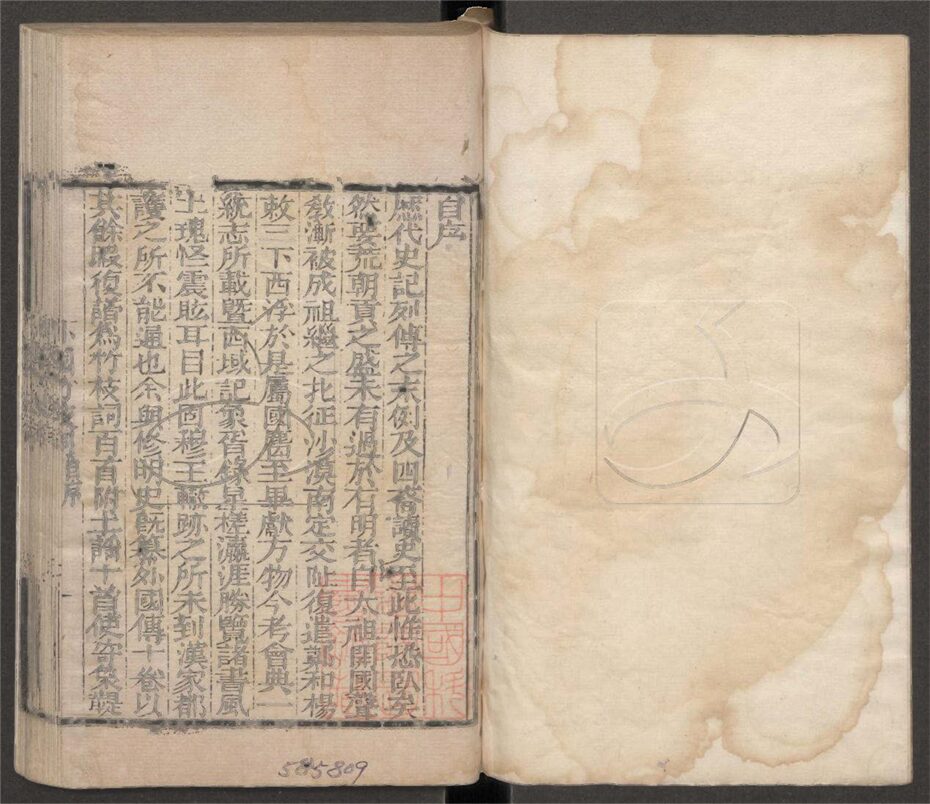 自序
歷代史記列傳之末例及四裔讀史至此惟恐臥矣
然要荒朝貢之盛未有過於有明者自太祖開國聲
教漸被成祖繼之北征沙漠南定交阯復遣鄭和楊
敕三下西洋於是屬國麕至畢獻方物今考會典一
統志所載暨西域記象胥錄星槎瀛涯勝覽諸書風
土瑰怪震眩耳目此固穆王轍跡之所未到漢家都
護之所不能通也余與修明史旣纂外國傳十卷以
其餘暇復譜爲竹枝詞百首附土謠十首使寄象鞮
585809